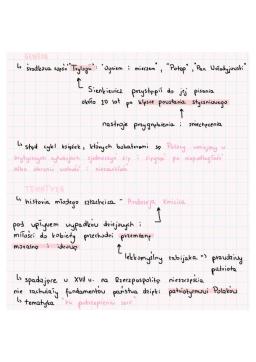 GENEZA
↳ środkowa część "Trylogii": "Ogniem i mieczem", "Potop", "Pan Wołodyjowski"
Sienkiewicz przystąpił do jej pisania
około 20 lat po klęsce powstania styczniowego
nastroje przygnębienia i zniechęcenia
↳ stąd cykl książek, których bohaterami są Polacy umiejący w
krytycznych sytuacjach zjednoczyć się i sięgnąć po niepodległość
albo obronić wolność i niezawisłość
TEMATYKA
↳ historia młodego szlachcica - Andrzeja Kmicica
pod wpływem wypadków dziejowych i
miłości do kobiety przechodzi przemianę
moralną i ideową
lekkomyślny zabijaka → prawdziwy
patriota
↳ spadające w XVII w. na Rzeczpospolitę nieszczęścia
nie zachwiały fundamentów państwa dzięki patriotyzmowi Polaków
↳ tematyka "ku pokrzepieniu serc"